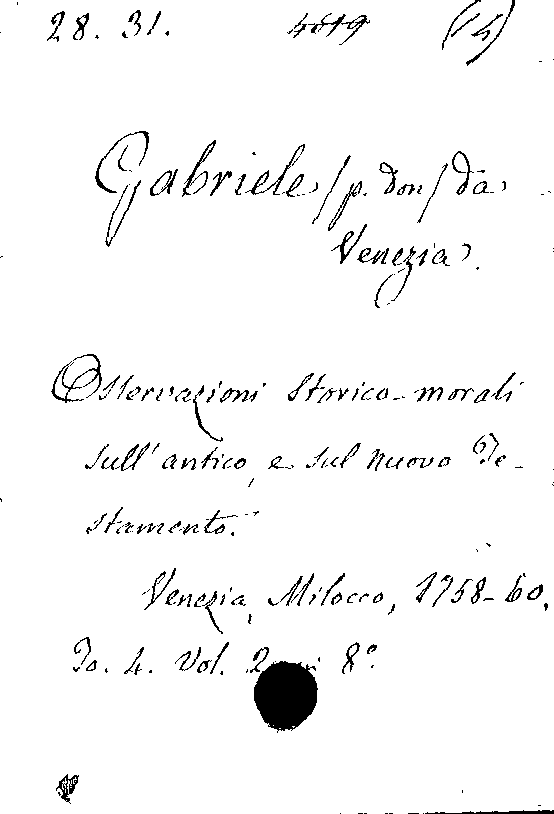 28. 31. 4819 (4)
Gabriele /p. don/ da
Venezia.
Osservazioni storico-morali
sull' antico, e sul nuovo Te-
stamento.
Venezia, Milocco, 1758-60,
To. 4. Vol. 2 8°.